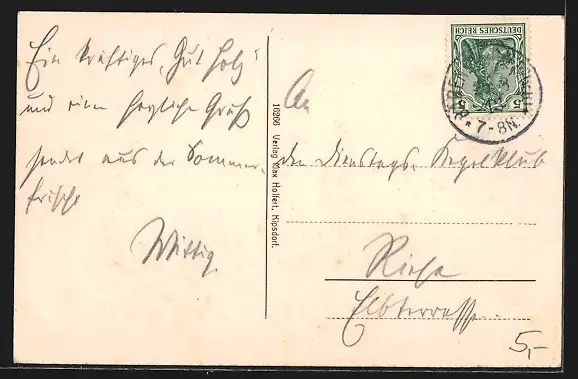 Ein kräftiges „Gut Holz"
und einen herzliche Gruß
sendet aus der Sommer-
frische
Wittig
16206 Verlag Max Hollert, Kipsdorf.
DEUTSCHES REICH
5 5
* 7-8N. *
An
den Dienstags-Kegelklub
Riesa
Elbterrasse.
5,-